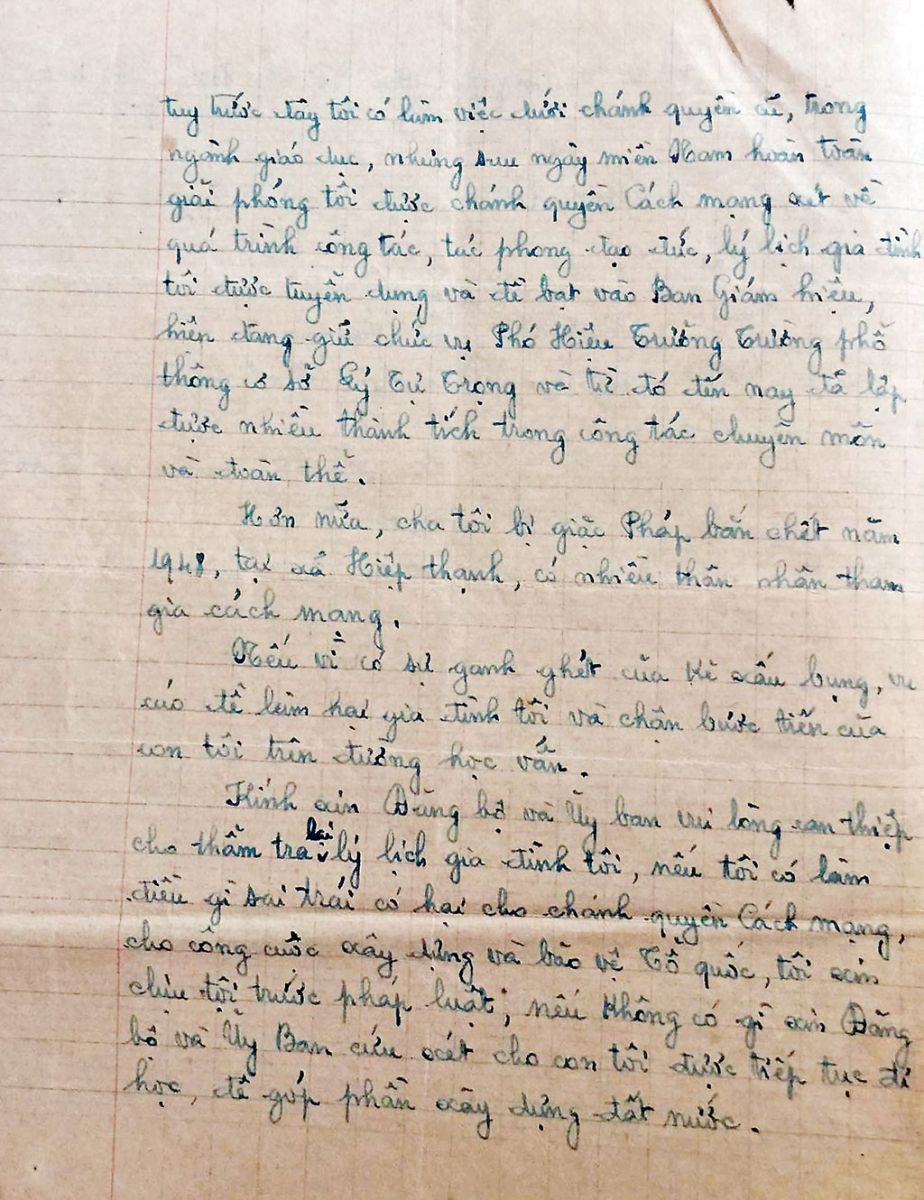 tuy trước đây tôi có làm việc dưới chánh quyền cũ, trong
ngành giáo dục, nhưng sau ngày miền Nam hoàn toàn
giải phóng tôi được chánh quyền Cách mạng xét về
quá trình công tác, tác phong đạo đức, lý lịch gia đình
tôi được tuyển dụng và đề bạt vào Ban Giám hiệu,
hiện đang giữ chức vụ Phó Hiệu Trưởng Trường phổ
thông cơ sở Lý Tự Trọng và từ đó đến nay đã lập
được nhiều thành tích trong công tác chuyên môn
và đoàn thể.
Hơn nữa, cha tôi bị giặc Pháp bắn chết năm
1948, tại xã Hiệp thạnh, có nhiều thân nhân tham
gia cách mạng.
Nếu vì có sự ganh ghét của kẻ xấu bụng, vu
cáo để làm hại gia đình tôi và chận bước tiến của
con tôi trên đường học vấn.
Kính xin Đảng bộ và Ủy ban vui lòng can thiệp
cho thẩm tra lại lý lịch gia đình tôi, nếu tôi có làm
điều gì sai trái có hại cho chánh quyền Cách mạng,
cho công cuộc xây dựng và bảo vệ Tổ quốc, tôi xin
chịu tội trước pháp luật; nếu không có gì xin Đảng
bộ và Ủy Ban cứu xét cho con tôi được tiếp tục đi
học, để góp phần xây dựng đất nước.